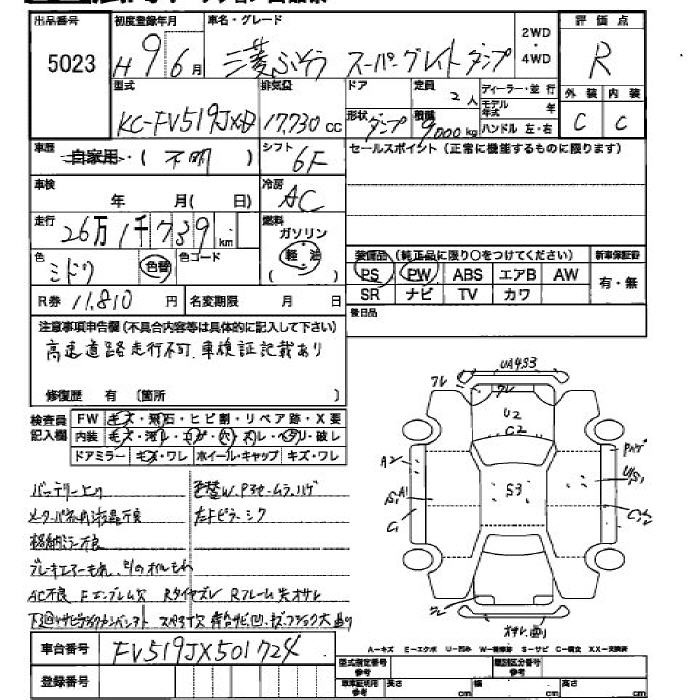 出品番号 5023
初度登録年月 H9年6月
車名・グレード 三菱ふそう スーパーグレイト ダンプ
2WD・4WD
評価点 R
型式 KC-FV519JXD
排気量 17,730 cc
ドア 形状 ダンプ
定員 2人
積載 9000kg
ディーラー・並行
モデル年式 年
ハンドル 左・右
外装 C 内装 C
車歴 自家用・(不明)
シフト 6F
セールスポイント(正常に機能するものに限ります)
車検 年 月(日)
冷房 AC
走行 26万1千739km
燃料 ガソリン 軽油 ( )
色 ミドリ 色替 色コード
装備品(純正品に限り○をつけてください)
新車保証書 有・無
PS PW ABS エアB AW
SR ナビ TV カワ
R券 11,810円
名変期限 月 日
後日品
注意事項申告欄(不具合内容等は具体的に記入して下さい)
高速道路走行不可.車検証記載あり
修復歴 有 [箇所 ]
検査員記入欄
FW キズ・飛石・ヒビ割・リペア跡・X要
内装 キズ・汚レ・コゲ・穴・スレ・ヘタリ・破レ
ドアミラー キズ・ワレ ホイール・キャップ キズ・ワレ
UA4S3
ワレ
ワレ
U2
C2
A2
Pハゲ
A1
S1
S3
U/S1
C1
バッテリー上り
色替W.Pヨセームラ.ハゲ
メーターパネル内液晶不良
左Fピラーシワ
格納ミラー不良
AC不良 Fエンブレム欠 Rタイヤズレ Rフレーム先オサレ
車台番号 FV519JX501724
登録番号
A-キズ E-エクボ U-凹み W-補修跡 S-サビ C-腐食 XX-交換済
型式指定番号 参考
類別区分番号 参考
車庫証明用 参考 長さ cm 幅 cm 高さ cm